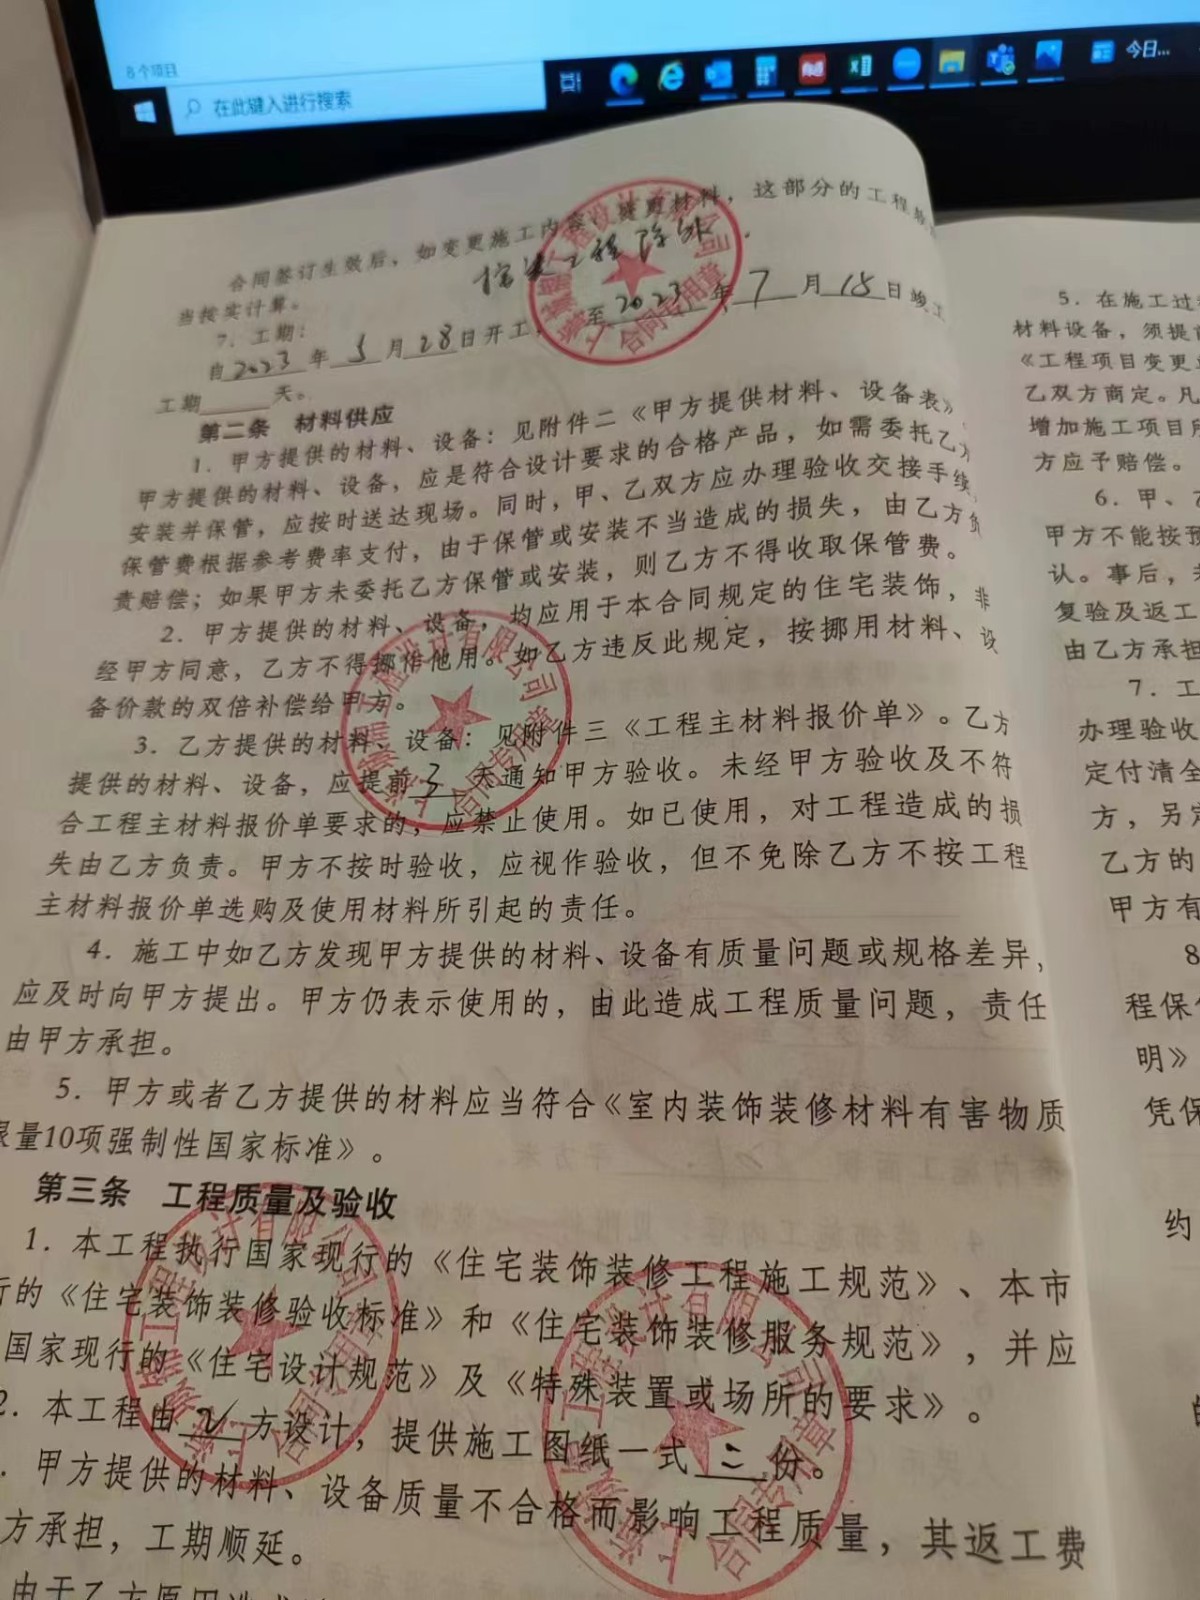 8个项目
在此键入进行搜索
今日...
合同签订生效后，如变更施工内容、变更材料，这部分的工程款
当按实计算。
工程除外.
7．工期：
自2023年5月28日开工，至2023年7月15日竣工
工期 天。
第二条 材料供应
1．甲方提供的材料、设备：见附件二《甲方提供材料、设备表》
甲方提供的材料、设备，应是符合设计要求的合格产品，如需委托乙方
安装并保管，应按时送达现场。同时，甲、乙双方应办理验收交接手续
保管费根据参考费率支付，由于保管或安装不当造成的损失，由乙方负
责赔偿；如果甲方未委托乙方保管或安装，则乙方不得收取保管费。
2．甲方提供的材料、设备，均应用于本合同规定的住宅装饰，非
经甲方同意，乙方不得挪作他用。如乙方违反此规定，按挪用材料、设
备价款的双倍补偿给甲方。
3．乙方提供的材料、设备：见附件三《工程主材料报价单》。乙方
提供的材料、设备，应提前3天通知甲方验收。未经甲方验收及不符
合工程主材料报价单要求的，应禁止使用。如已使用，对工程造成的损
失由乙方负责。甲方不按时验收，应视作验收，但不免除乙方不按工程
主材料报价单选购及使用材料所引起的责任。
4．施工中如乙方发现甲方提供的材料、设备有质量问题或规格差异，
应及时向甲方提出。甲方仍表示使用的，由此造成工程质量问题，责任
由甲方承担。
5．甲方或者乙方提供的材料应当符合《室内装饰装修材料有害物质
限量10项强制性国家标准》。
第三条 工程质量及验收
1．本工程执行国家现行的《住宅装饰装修工程施工规范》、本市
行的《住宅装饰装修验收标准》和《住宅装饰装修服务规范》，并应
国家现行的《住宅设计规范》及《特殊装置或场所的要求》。
2．本工程由乙方设计，提供施工图纸一式二份。
．甲方提供的材料、设备质量不合格而影响工程质量，其返工费
方承担，工期顺延。
由于乙方原因造成
5．在施工过
材料设备，须提前
《工程项目变更单
乙双方商定。凡
增加施工项目所
方应予赔偿。
6．甲、乙
甲方不能按预
认。事后，
复验及返工
由乙方承担
7．工
办理验收
定付清全
方，另定
乙方的
甲方有
8
程保修
明》
凭保
约
工程设计有限公司
合同专用章
工程设计有限公司
合同专用章
工程设计有限公司
合同专用章
工程设计有限公司
合同专用章